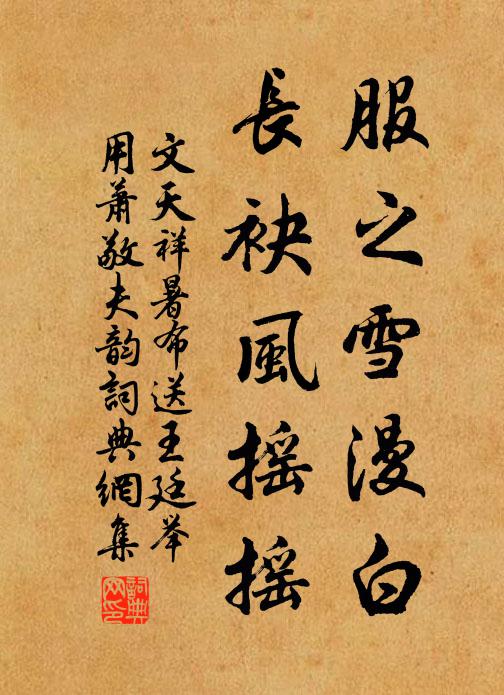 服之雪漫白
長袂風摇摇
文天祥暑布送王廷举
用萧敬夫韵詞典網集
詞典网印